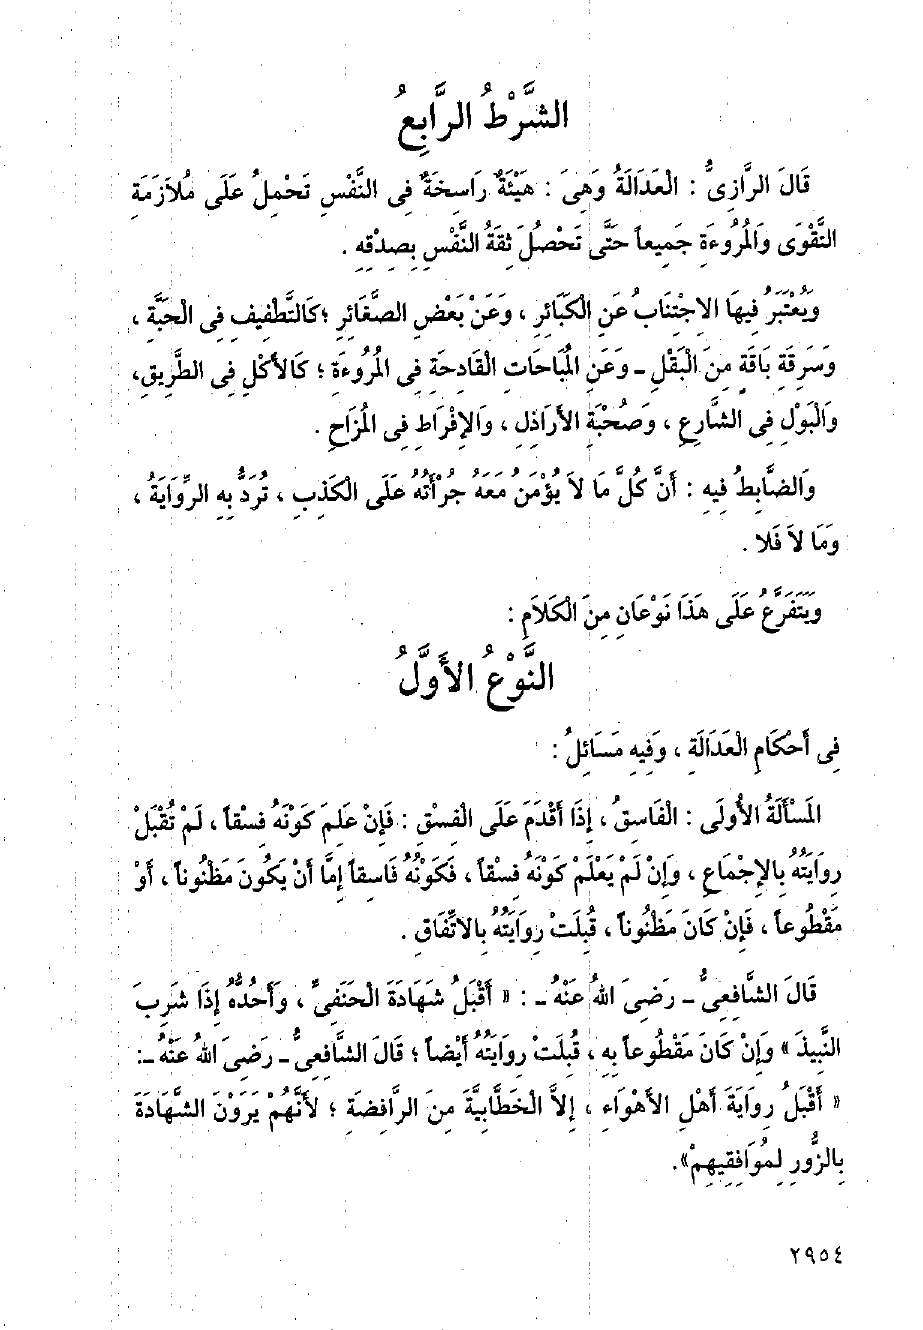 الشَّرْطُ الرَّابِعُ
قَالَ الرَّازِىُّ : الْعَدَالَةُ وَهِىَ : هَيْئَةٌ رَاسِخَةٌ فِى النَّفْسِ تَحْمِلُ عَلَى مُلاَزَمَةِ
التَّقْوَى وَالْمُرُوءَةِ جَمِيعاً حَتَّى تَحْصُلَ ثِقَةُ النَّفْسِ بِصِدْقِهِ .
وَيُعْتَبَرُ فِيهَا الاِجْتِنَابُ عَنِ الْكَبَائِرِ ، وَعَنْ بَعْضِ الصَّغَائِرِ ؛كَالتَّطْفِيفِ فِى الْحَبَّةِ ،
وَسَرِقَةِ بَاقَةٍ مِنَ الْبَقْلِ ـ وَعَنِ الْمُبَاحَاتِ الْقَادِحَةِ فِى الْمُرُوءَةِ ؛ كَالأَكْلِ فِى الطَّرِيقِ،
وَالْبَوْلِ فِى الشَّارِعِ ، وَصُحْبَةِ الأَرَاذِلِ ، وَالإِفْرَاطِ فِى الْمُزَاحِ .
وَالضَّابِطُ فِيهِ : أَنَّ كُلَّ مَا لاَ يُؤْمَنُ مَعَهُ جُرْأَتُهُ عَلَى الْكَذِبِ ، تُرَدُّ بِهِ الرِّوَايَةُ ،
وَمَا لاَ فَلا .
وَيَتَفَرَّعُ عَلَى هَذَا نَوْعَانِ مِنَ الْكَلاَمِ :
النَّوْعُ الأَوَّلُ
فِى أَحْكَامِ الْعَدَالَةِ ، وَفِيهِ مَسَائِلُ :
الْمَسْأَلَةُ الأُولَى : الْفَاسِقُ ، إِذَا أَقْدَمَ عَلَى الْفِسْقِ : فَإِنْ عَلِمَ كَوْنَهُ فِسْقاً ، لَمْ تُقْبَلْ
رِوَايَتُهُ بِالإِجْمَاعِ ، وَإِنْ لَمْ يَعْلَمْ كَوْنَهُ فِسْقاً ، فَكَوْنُهُ فَاسِقاً إِمَّا أَنْ يَكُونَ مَظْنُوناً ، أَوْ
مَقْطُوعاً ، فَإِنْ كَانَ مَظْنُوناً ، قُبِلَتْ رِوَايَتُهُ بِالاتِّفَاقِ .
قَالَ الشَّافِعِىُّ ـ رَضِىَ اللهُ عَنْهُ ـ : « أَقْبَلُ شَهَادَةَ الْحَنَفِىِّ ، وَأَحُدُّهُ إِذَا شَرِبَ
النَّبِيذَ » وَإِنْ كَانَ مَقْطُوعاً بِهِ ، قُبِلَتْ رِوَايَتُهُ أَيْضاً ؛ قَالَ الشَّافِعِىُّ ـ رَضِىَ اللهُ عَنْهُ ـ:
« أَقْبَلُ رِوَايَةَ أَهْلِ الأَهْوَاءِ ، إِلاَّ الْخَطَّابِيَّةَ مِنَ الرَّافِضَةِ ؛ لأَنَّهُمْ يَرَوْنَ الشَّهَادَةَ
بِالزُّورِ لِمُوَافِقِيهِمْ».
٢٩٥٤